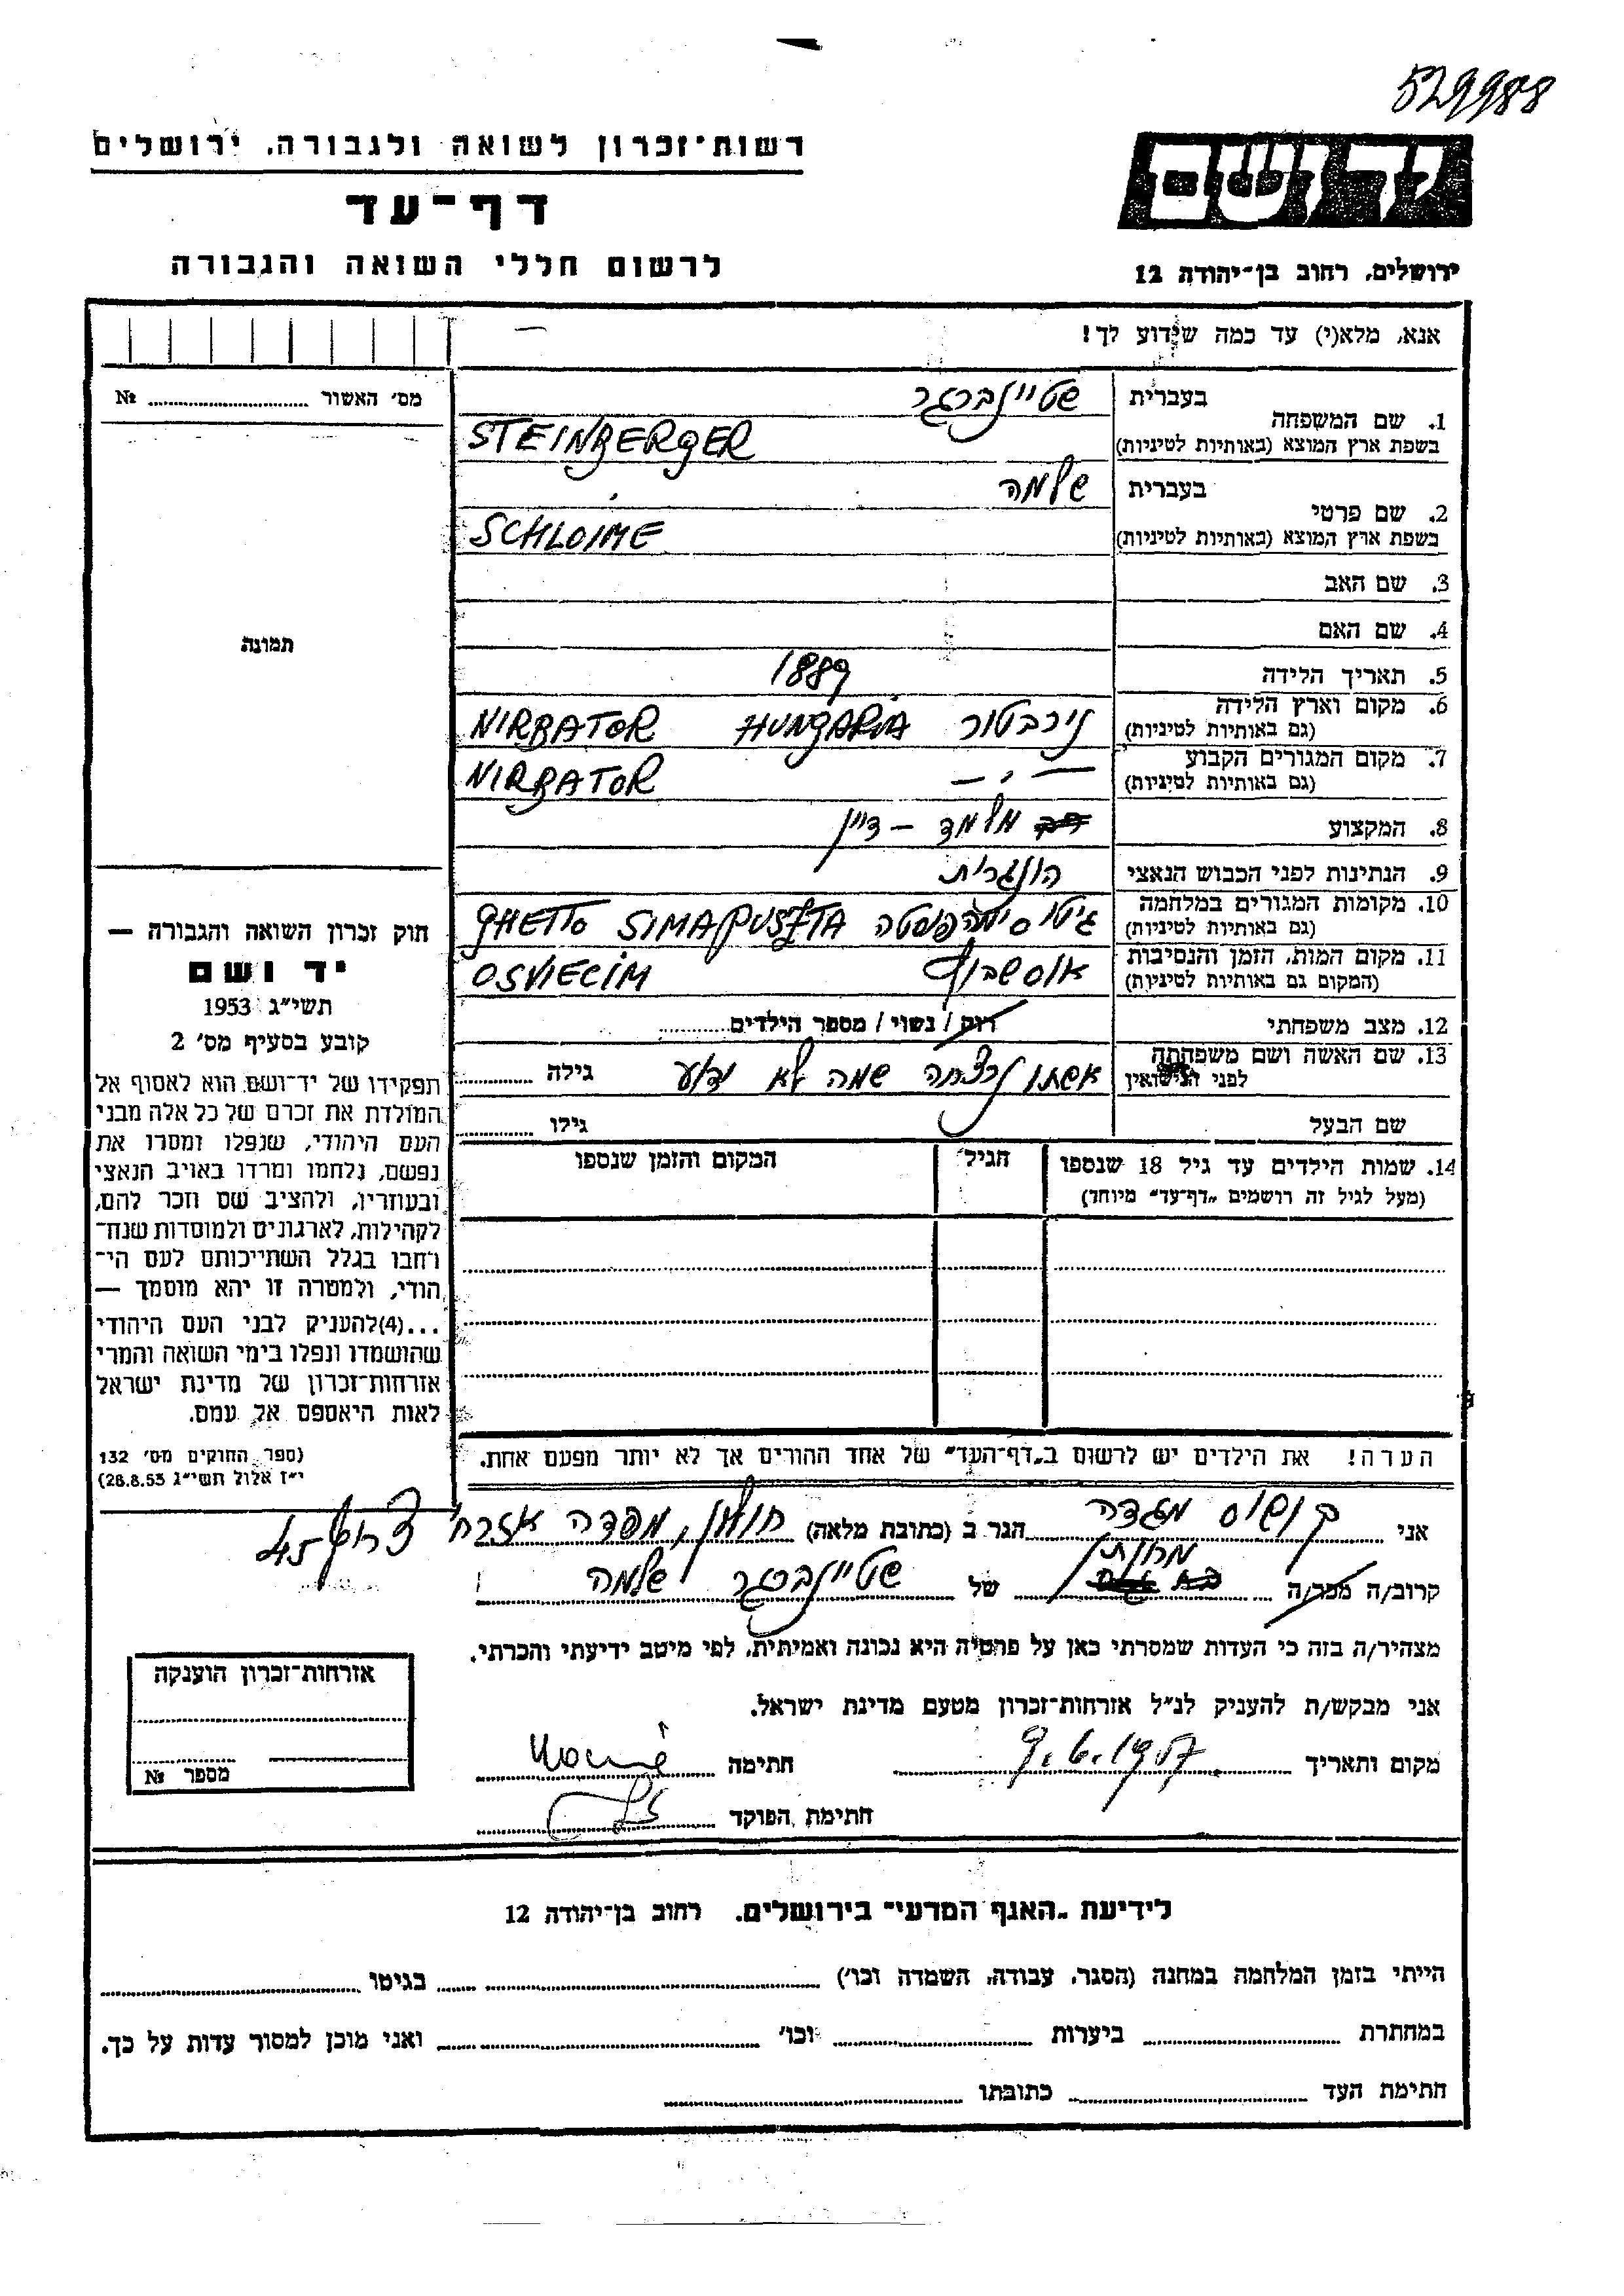 529988
רשות־זכרון לשואה ולגבורה, ירושלים
דף־עד
לרשום חללי השואה והגבורה
יד ושם
ירושלים, רחוב בן־יהודה 12
אנא, מלא(י) עד כמה שידוע לך!
מס׳ האשור № 
תמונה
1. שם המשפחה בעברית שטיינברגר
בשפת ארץ המוצא (באותיות לטיניות) STEINBERGER
2. שם פרטי בעברית שלמה
בשפת ארץ המוצא (באותיות לטיניות) SCHLOIME
3. שם האב
4. שם האם
5. תאריך הלידה 1889
6. מקום וארץ הלידה (גם באותיות לטיניות) נירבטור HUNGARIA NIRBATOR
7. מקום המגורים הקבוע (גם באותיות לטיניות) — ״ — NIRBATOR
8. המקצוע מלמד – דיין
9. הנתינות לפני הכבוש הנאצי הונגרית
10. מקומות המגורים במלחמה (גם באותיות לטיניות) גיטו סימהפוסטה GHETTO SIMAPUSZTA
11. מקום המות, הזמן והנסיבות (המקום גם באותיות לטיניות) OSVIECIM
12. מצב משפחתי רוק / נשוי / מספר הילדים
13. שם האשה ושם משפחתה לפני הנישואין אשתו נרצחה שמה לא ידוע גילה
שם הבעל גילו
14. שמות הילדים עד גיל 18 שנספו
(מעל לגיל זה רושמים „דף־עד״ מיוחד)
הגיל
המקום והזמן שנספו
חוק זכרון השואה והגבורה —
יד ושם
תשי״ג 1953
קובע בסעיף מס׳ 2
תפקידו של יד־ושם הוא לאסוף אל
המולדת את זכרם של כל אלה מבני
העם היהודי, שנפלו ומסרו את
נפשם, נלחמו ומרדו באויב הנאצי
ובעוזריו, ולהציב שם וזכר להם,
לקהילות, לארגונים ולמוסדות שנח־
רחבו בגלל השתייכותם לעם הי־
הודי, ולמטרה זו יהא מוסמך —
...(4)להעניק לבני העם היהודי
שהושמדו ונפלו בימי השואה והמרי
אזרחות־זכרון של מדינת ישראל
לאות היאספם אל עמם.
(ספר החוקים מס׳ 132
י״ז אלול תשי״ג 28.8.53)
הערה! את הילדים יש לרשום ב„דף־העד״ של אחד ההורים אך לא יותר מפעם אחת.
אני מגדה הגר ב (כתובת מלאה) חולון, 45
קרוב/ה מכר/ה של שטיינברגר שלמה
מצהיר/ה בזה כי העדות שמסרתי כאן על פרטיה היא נכונה ואמיתית, לפי מיטב ידיעתי והכרתי.
אני מבקש/ת להעניק לנ״ל אזרחות־זכרון מטעם מדינת ישראל.
מקום ותאריך 9.6.1957 חתימה
חתימת הפוקד
אזרחות־זכרון הוענקה
מספר №
לידיעת „האגף המדעי״ בירושלים, רחוב בן־יהודה 12
הייתי בזמן המלחמה במחנה (הסגר, עבודה, השמדה וכו׳) בגיטו
במחתרת ביערות וכו׳ ואני מוכן למסור עדות על כך.
חתימת העד כתובתו